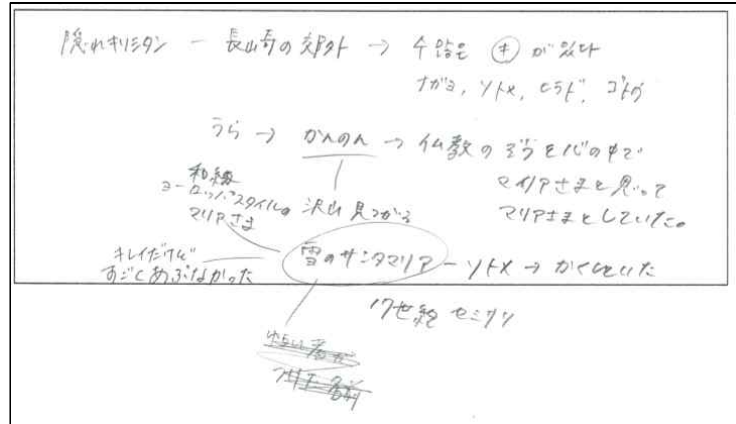 隠れキリシタン － 長崎の郊外 → が
ナガヨ, ソトメ, ヒラド, ゴトウ
うら → かんのん → 仏教のぞうを心の中で
マリアさまと思って
マリアさまとしていた。
和編
ヨーロッパスタイルの
マリアさま
沢山見つかる
キレイだけど
すごくあぶなかった
雪のサンタマリア － ソトメ → かくしていた
17世紀 セミナリ